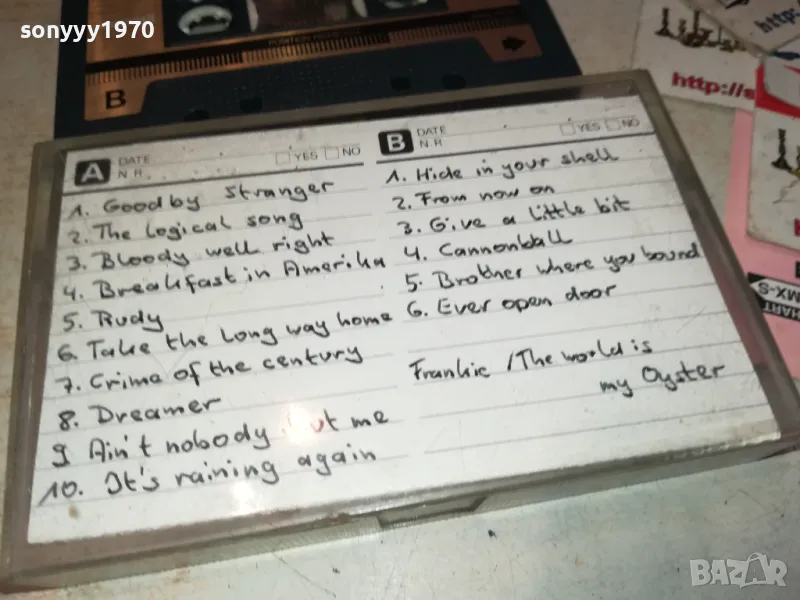 sonyyy1970
B
http://s
http:
A DATE
N.R.
YES NO
1. Goodby stranger
2. The logical song
3. Bloody well right
4. Breakfast in Amerika
5. Rudy
6. Take the long way home
7. Crime of the century
8. Dreamer
9 Ain't nobody but me
10. It's raining again
B DATE
N.R.
YES NO
1. Hide in your shell
2. From now on
3. Give a little bit
4. Cannonball
5. Brother where you bound
6. Ever open door
Frankie / The world is
my Oyster
MX-S
BAZAR